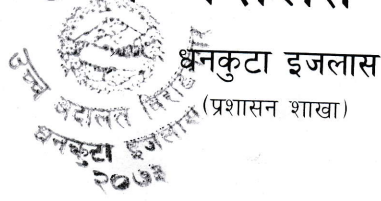 धनकुटा इजलास
(प्रशासन शाखा)
उच्च अदालत विराटनगर
धनकुटा इजलास
२०७३